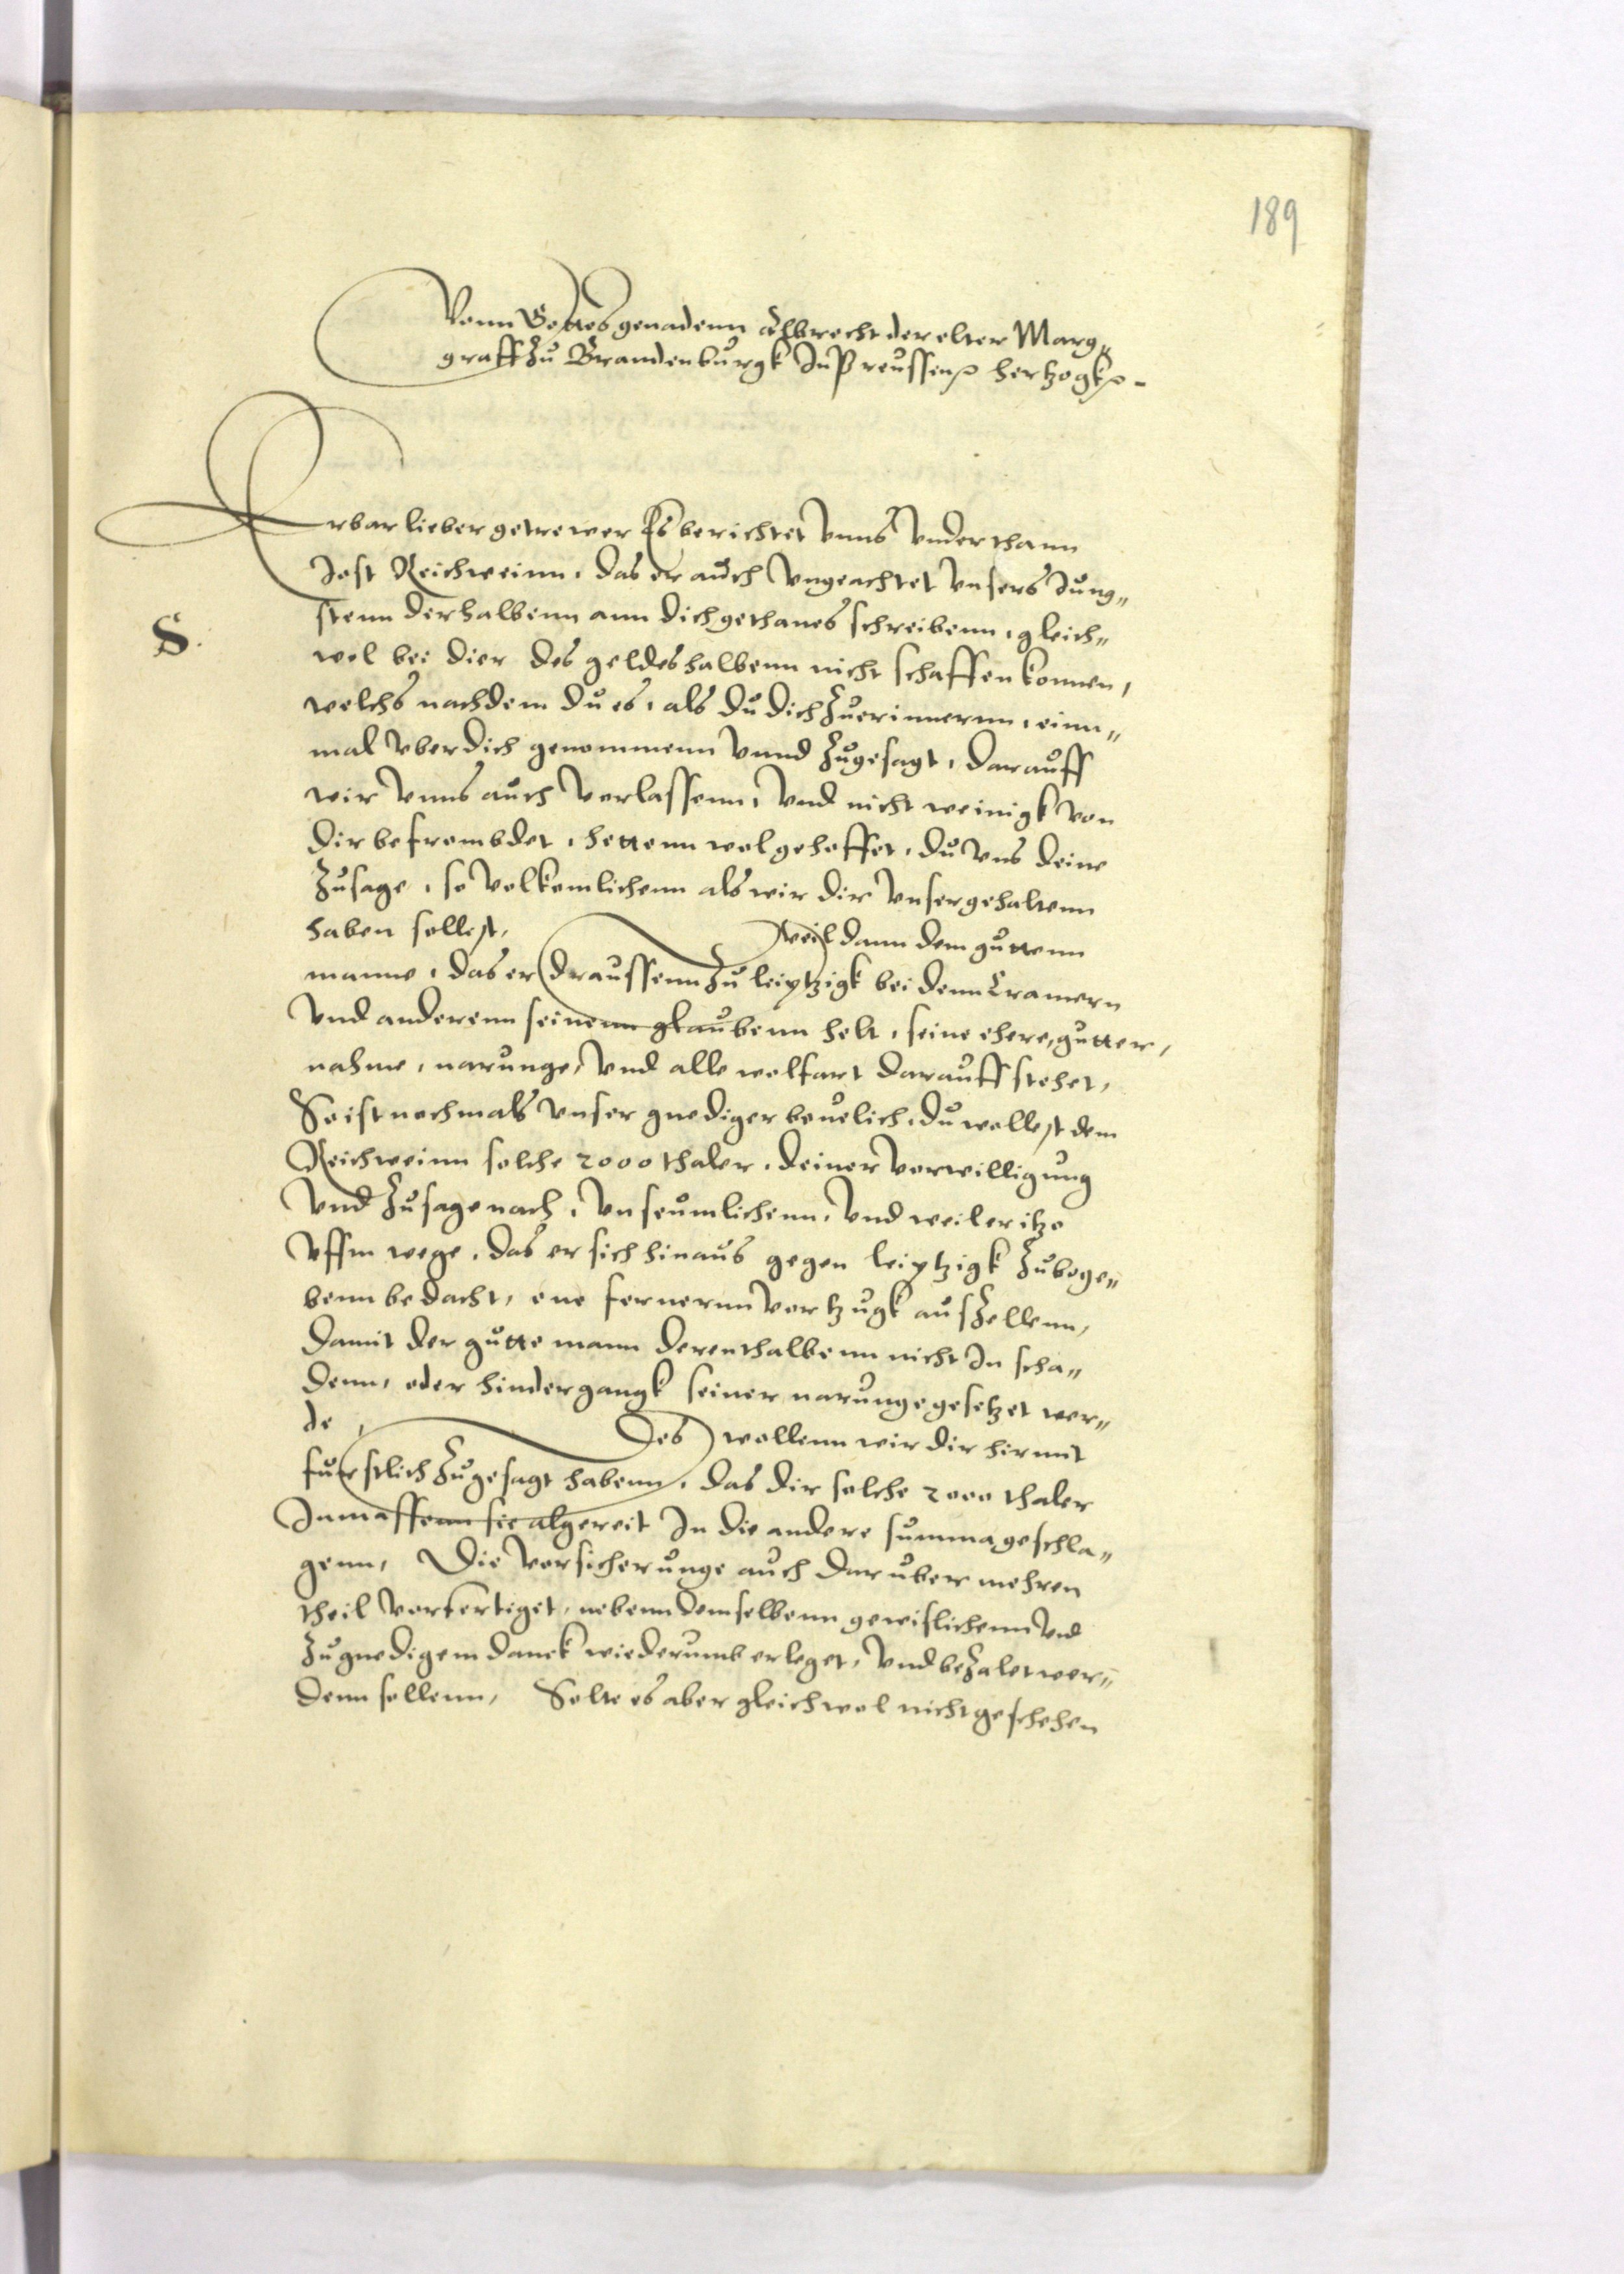 189
Vonn Gottes genadenn Albrecht der elter Marg„
graff Zu Brandenburgk In Preussenn hertzogk
Erbar lieber getrewer Es berichtet Vnns Vnderthann
Jost Reichweinn, das er auch Vngeachtet Vnsers Jung„
stenn derhalbenn ann dich gethanes schreibenn, gleich„
S.
wol bei dier des geldes halbenn nicht schaffen konnen,
welchs nachdem du es, als du dich Zuerinnernn, einn„
mal vber dich genommenn Vnnd Zugesagt, darauff
wir Vnns auch Verlassenn, Vnd nicht weinigk von
dir befrembdet, hettenn wol gehoffet, du Vns deine
Zusage, so Volkomlichenn als wir dir Vnser gehaltenn
haben sollest, Weil dann dem guttenn
manne, das er draussenn Zu leiptzigk bei denn Cramern
Vnd anderenn seinenn glaubenn helt, seine ehere, gutter,
nahme, narunge, Vnd alle wolfart darauff stehet,
So ist nochmals Vnser gnediger beuelich, du wollest dem
Reichweinn solche 2000 thaler, deiner Vorwilligung
Vnd Zusage nach, Vnseumlichenn, Vnd weil er itzo
Vffm wege, das er sich hinaus gegen leiptzigk Zubege„
benn bedacht, one fernernn Vortzugk ausZellenn,
damit der gutte mann derenthalbenn nicht In scha„
denn, oder hindergangk seiner narunge gesetzet wer„
de, Des wollenn wir dir hiermit
furstlich Zugesagt habenn, das dir solche 2000 thaler
Inmassenn sie algereit In die andere summa geschla„
genn, Die Vorsicherunge auch daruber mehren
theil Vorfertiget, nebenn demselbenn gewislichenn Vnd
Zu gnedigem danck wiederumb erleget, Vnd beZalet wer„
denn sollenn, Solte es aber gleichwol nicht geschehen